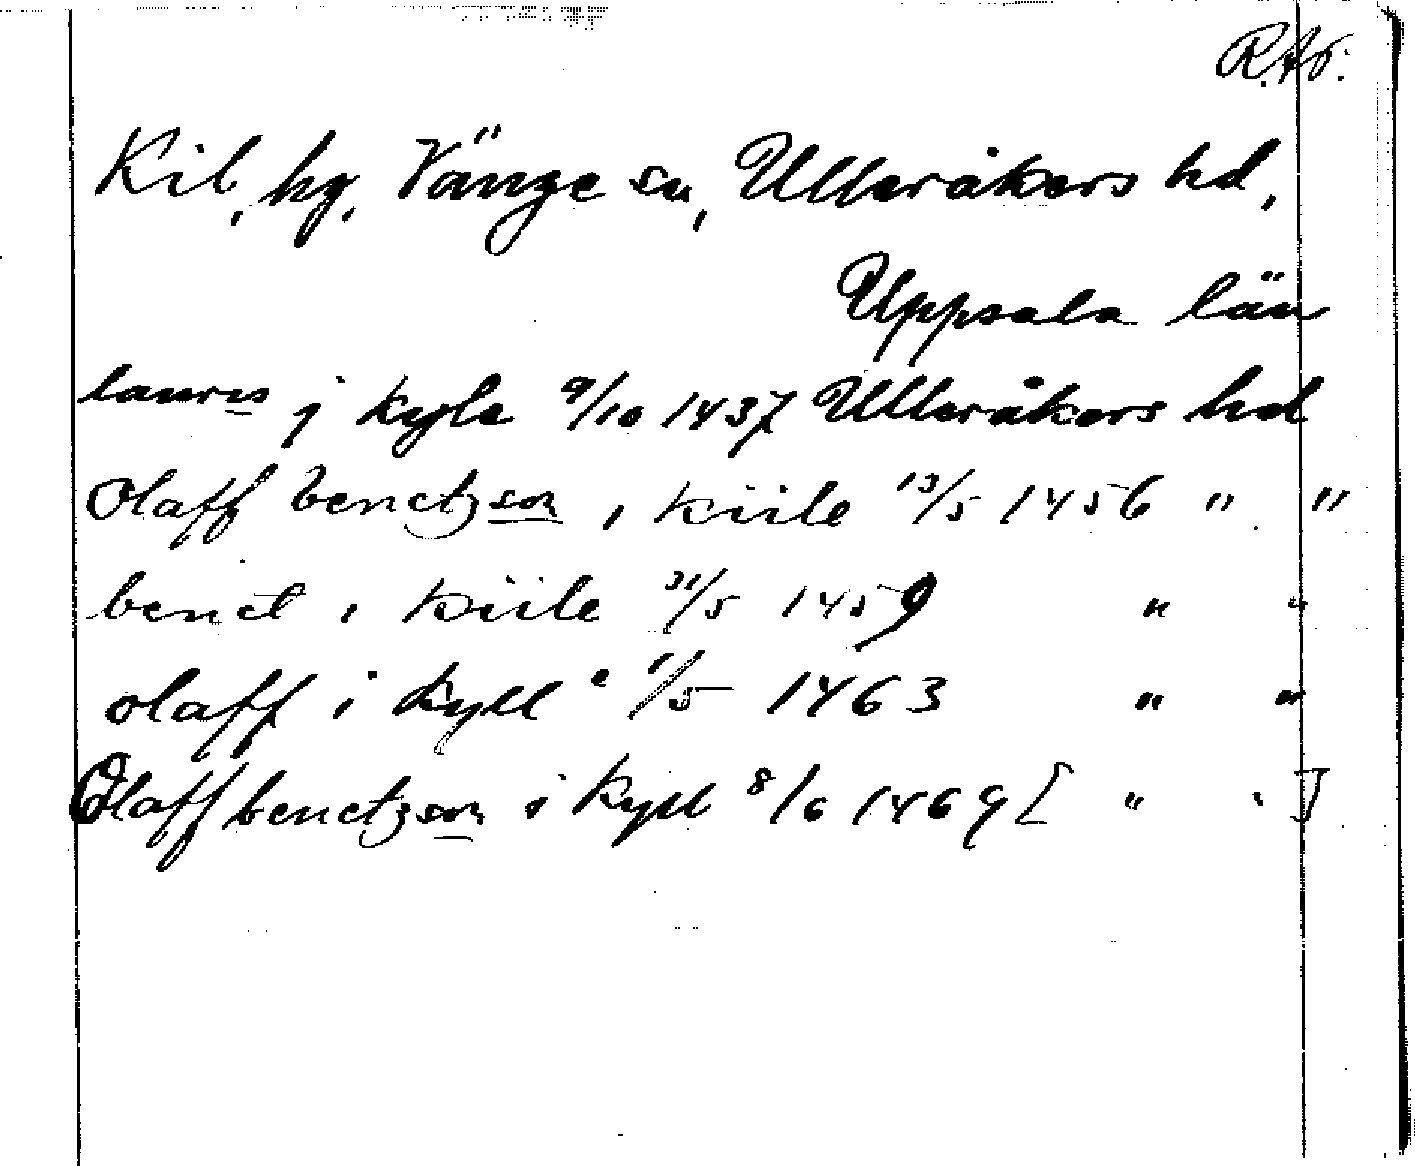 R.Ap.
Kil, hg, Vänge sn, Ulleråkers hd,
Uppsala län
laurus j kyle 9/10 1437 Ulleråkers hd
Olaff benctzson i kiile 13/5 1456 " "
benct i kiile 31/5 1459 " "
olaff i kyll e 1/5 1463 " "
Olaff benctzson i kyll 8/6 1469 [ " " ]